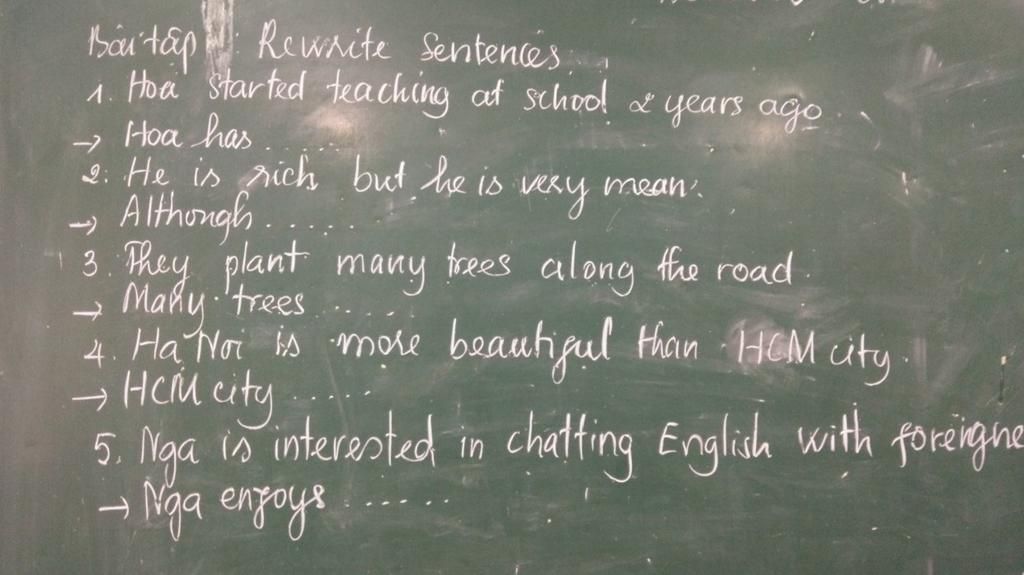 Bài tập : Rewrite Sentences.
1. Hoa started teaching at school 2 years ago.
→ Hoa has ......
2. He is rich but he is very mean.
→ Although ......
3. They plant many trees along the road.
→ Many trees ......
4. Ha Noi is more beautiful than HCM city.
→ HCM city ......
5. Nga is interested in chatting English with foreigne
→ Nga enjoys ......